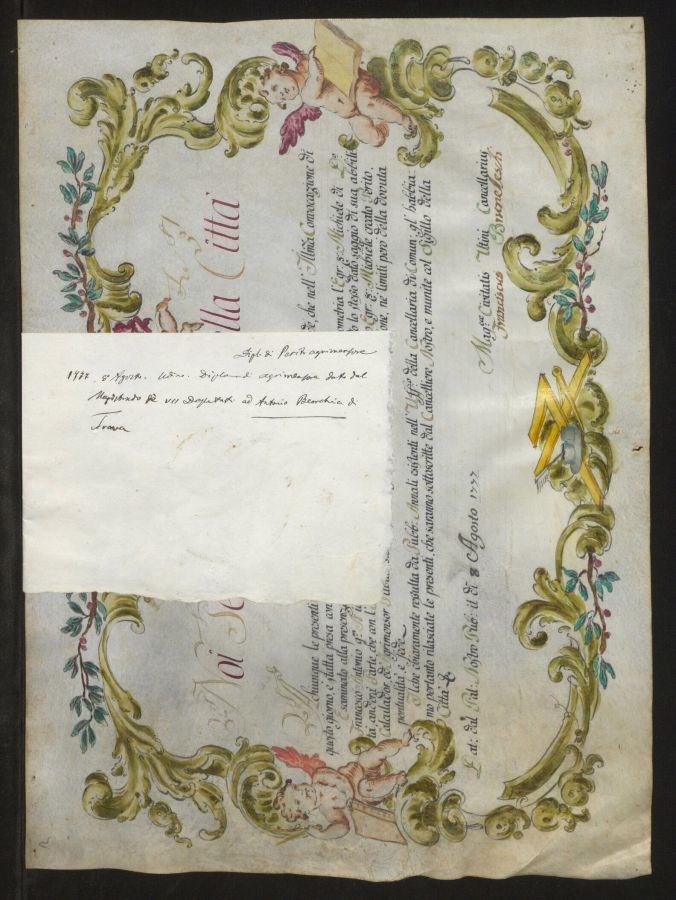 Dipl. di Perito agrimensore
1777 8 Agosto. Udine. Diploma di agrimensore dato dal
Magistrato de VII Deputati ad Antonio Bearchia di
Trava
Noi Se
lla Città
chiunque le presenti
e, che nell' Illma Convocazione di
questo giorno, è statta presa con
ometria l' Egr. Sr. Michiele di Dn.
Esaminato alla presenza
o lo stesso dato saggio di sua abili
Francesco Antonio
Egr. Sr. Michiele creato Perito,
tà, anderà Parte, che con l'
one, ne' limiti però della dovuta
Calcullador, ed Agrimensor
pontualità, e fede
Il che chiaramente resulta da Pubb. Annali esistenti nell' Uffo. della Cancellaria di Comun, gl' habbia:
mo pertanto rilasciate le presenti, che saranno sottoscritte dal Cancelliere Nostro, e munite col Sigillo della
Città
Dat: dal Pal. Nostro Pub: il di 8 Agosto 1777
Magcae Civitatis Utini Cancellarius
Franciscus Brunelleschi